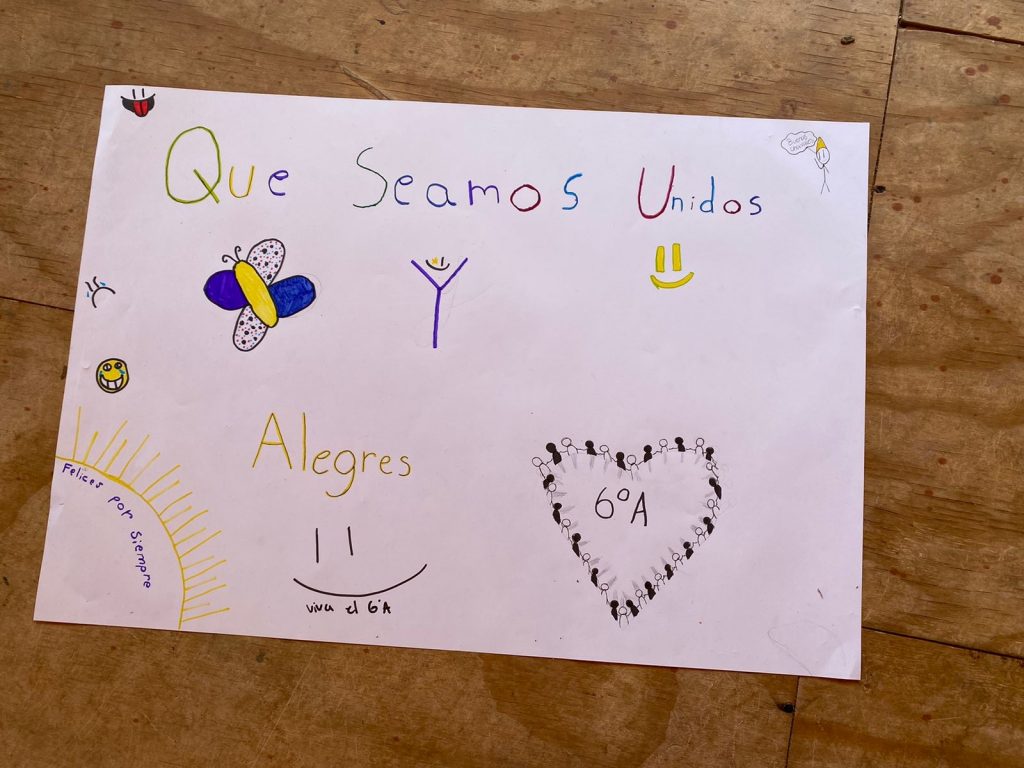 Que Seamos Unidos
Y
Alegres
6ºA
Felices por Siempre
viva el 6ºA